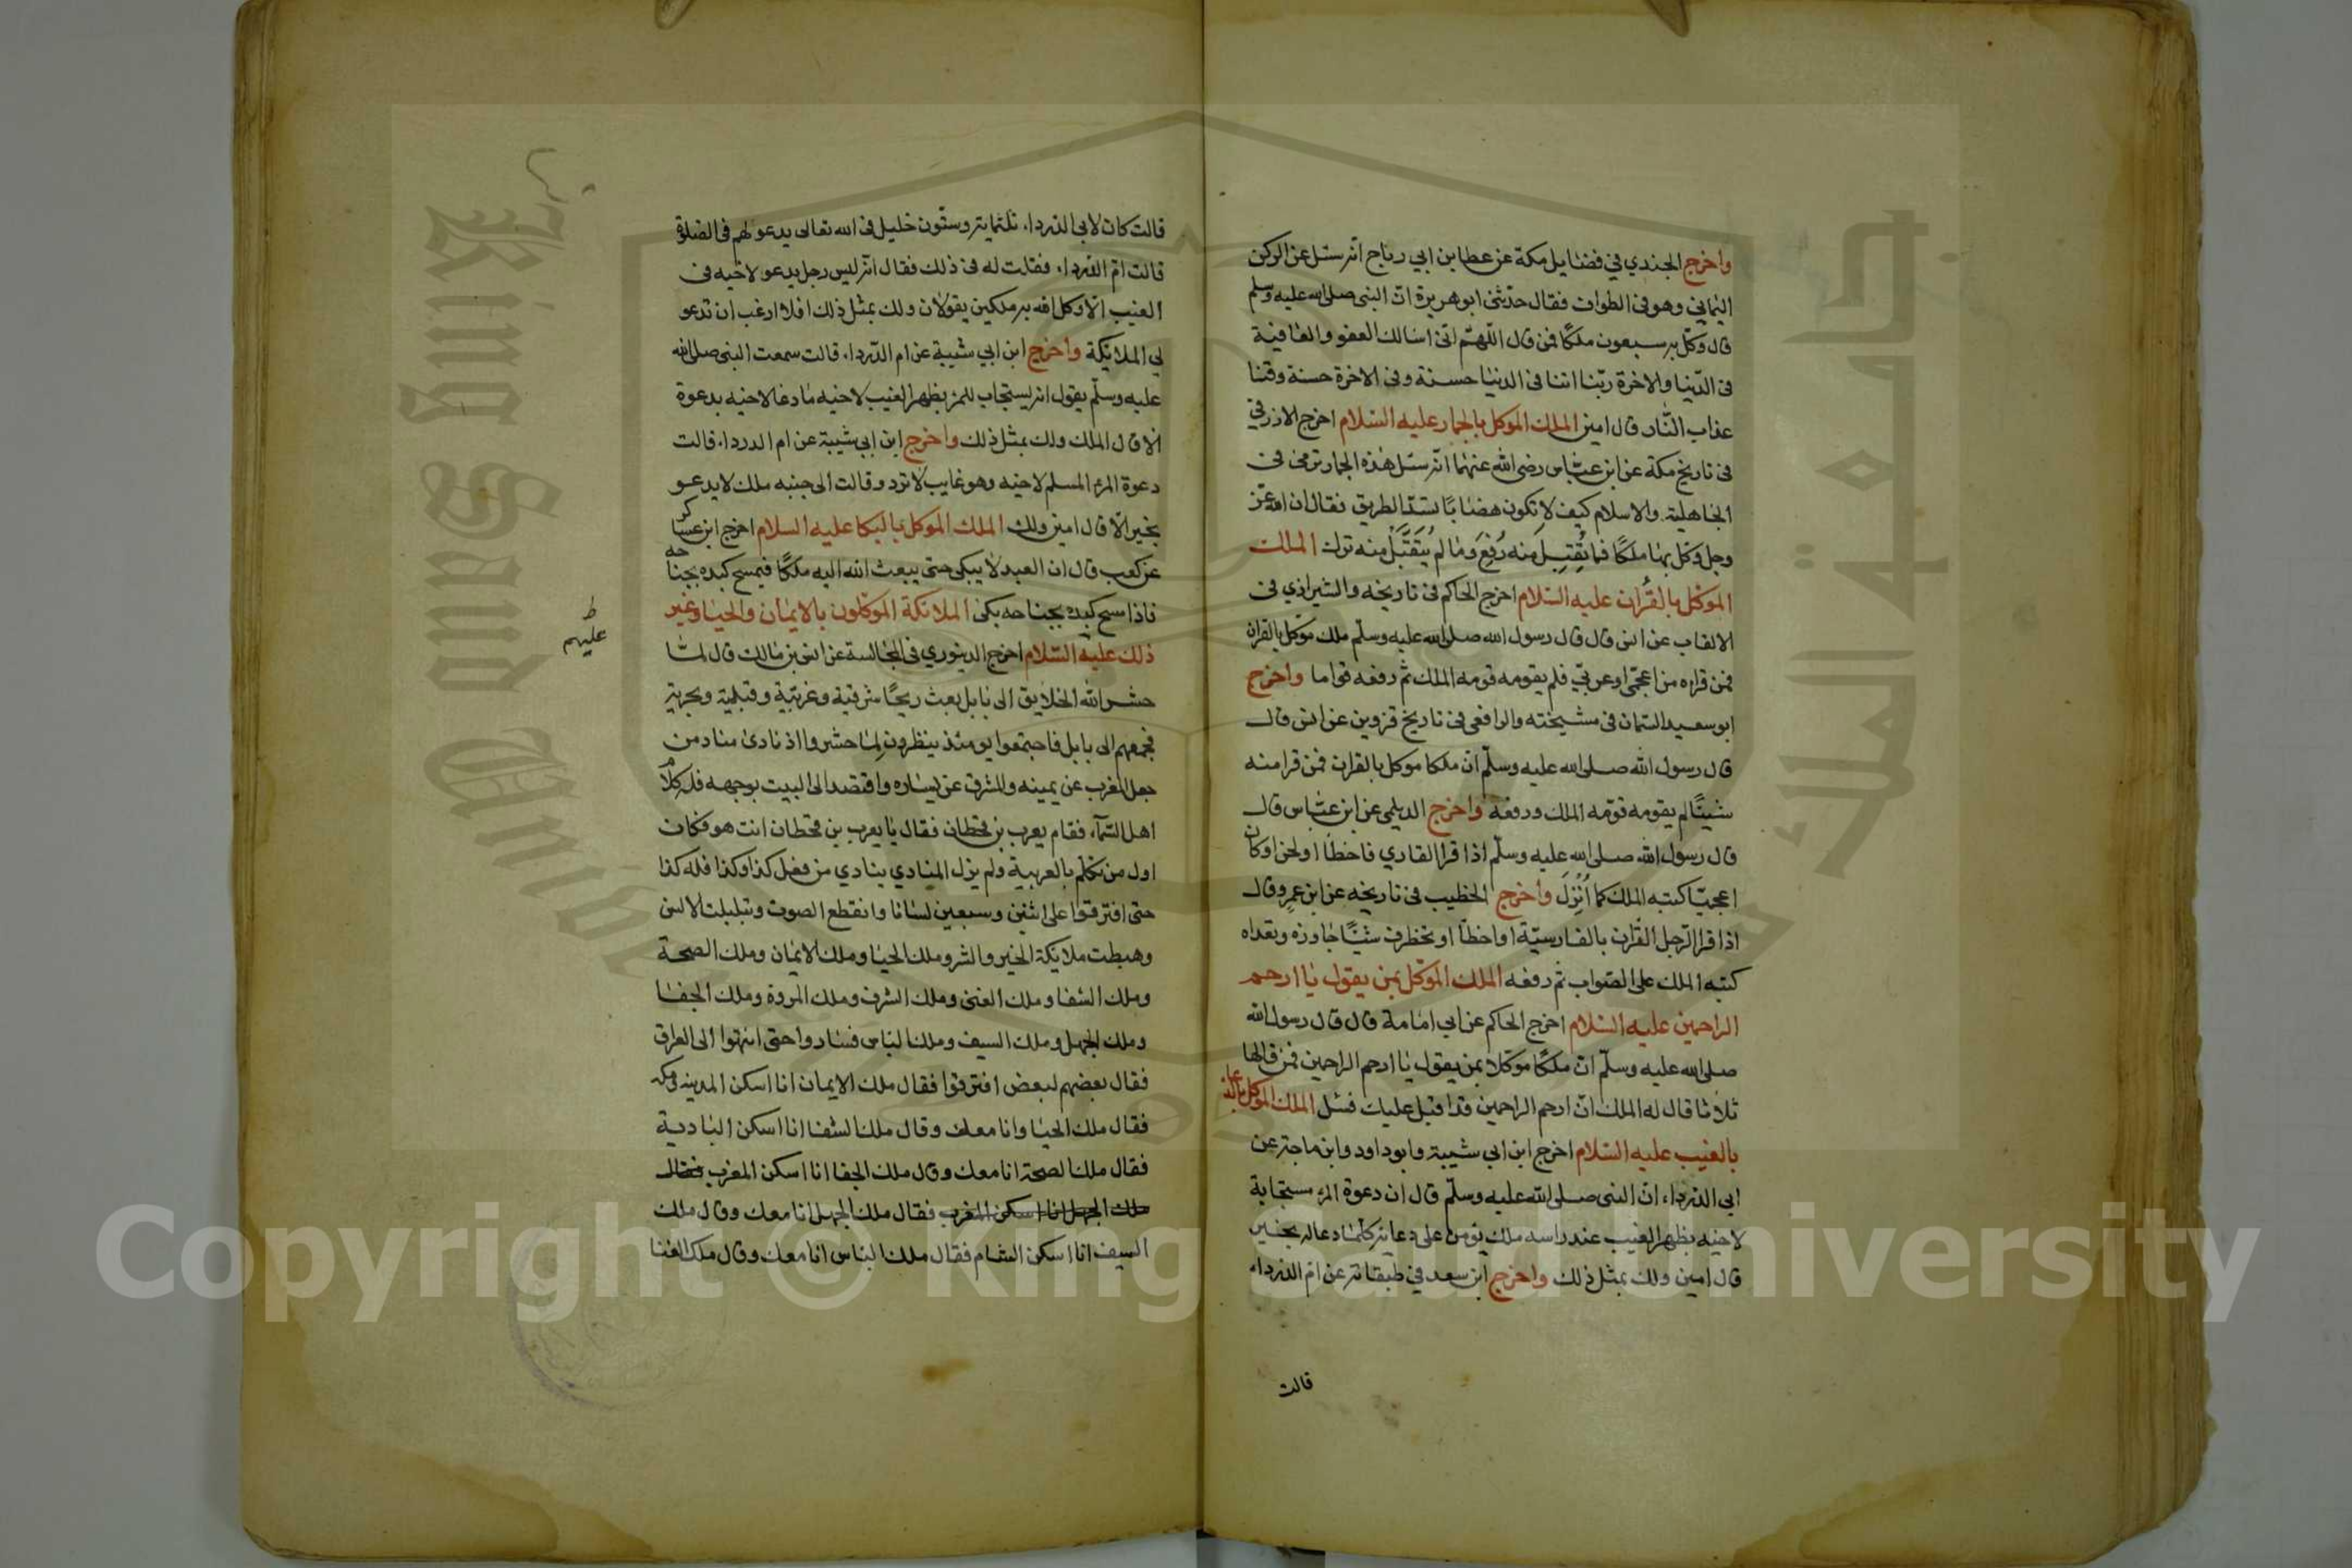 واخرج الجندي في فضايل مكة عن عطا بن ابي رباح انه سئل عن الركن
اليماني وهو في الطواف فقال حدثني ابو هريرة ان النبي صلى الله عليه وسلم
قال وكل به سبعون ملكا فمن قال اللهم اني اسالك العفو والعافية
في الدنيا والاخرة ربنا اتنا في الدنيا حسنة وفي الاخرة حسنة وقنا
عذاب النار قال امين الملك الموكل بالجمار عليه السلام اخرج الازرقي
في تاريخ مكة عن ابن عباس رضي الله عنهما انه سئل هذه الجمار ترمى في
الجاهلية والاسلام كيف لا تكون هضابا تسد الطريق فقال ان الله عز
وجل وكل بها ملكا فما تُقُبِلَ منه رُفِعَ وما لم يُتَقَبَّل منه ترك الملك
الموكل بالقُران عليه السلام اخرج الحاكم في تاريخه والشيرازي في
الالقاب عن انس قال قال رسول الله صلى الله عليه وسلم ملك موكل بالقران
فمن قراه من اعجمي او عربي فلم يقومه قومه الملك ثم رفعه قواما واخرج
ابو سعيد السمان في مشيخته والرافعي في تاريخ قزوين عن انس قال
قال رسول الله صلى الله عليه وسلم ان ملكا موكل بالقران فمن قرا منه
شيئا لم يقومه قومه الملك ورفعه واخرج الديلمي عن ابن عباس قال
قال رسول الله صلى الله عليه وسلم اذا قرا القاري فاخطا او لحن او كان
اعجميا كتبه الملك كما اُنْزِلَ واخرج الخطيب في تاريخه عن ابن عمرو قال
اذا قرا الرجل القران بالفارسية او اخطا او تخطرف شيئا جاوزه وتعداه
كتبه الملك على الصواب ثم رفعه الملك الموكل بمن يقول يا ارحم
الراحمين عليه السلام اخرج الحاكم عن ابي امامة قال قال رسول الله
صلى الله عليه وسلم ان ملكا موكلا بمن يقول يا ارحم الراحمين فمن قالها
ثلاثا قال له الملك ان ارحم الراحمين قد اقبل عليك فسل الملك الموكل بالدعا
بالغيب عليه السلام اخرج ابن ابي شيبة وابو داود وابن ماجة عن
ابي الدرداء ان النبي صلى الله عليه وسلم قال ان دعوة المرء مستجابة
لاخيه بظهر الغيب عند راسه ملك يومن على دعائه كلما دعا له بخير
قال امين ولك بمثل ذلك واخرج ابن سعد في طبقاته عن ام الدرداء
قالت
قالت كان لابي الدرداء ثلثماية وستون خليل في الله تعالى يدعو لهم في الصلوة
قالت ام الدرداء فقلت له في ذلك فقال انه ليس رجل يدعو لاخيه في
الغيب الا وكل الله به ملكين يقولان ولك بمثل ذلك افلا ارغب ان تدعو
لي الملائكة واخرج ابن ابي شيبة عن ام الدرداء قالت سمعت النبي صلى الله
عليه وسلم يقول انه ليستجاب للمرء بظهر الغيب لاخيه ما دعا لاخيه بدعوة
الا قال الملك ولك بمثل ذلك واخرج ابن ابي شيبة عن ام الدرداء قالت
دعوة المرء المسلم لاخيه وهو غايب لا ترد وقالت الى جنبه ملك لا يدعو
بخير الا قال امين ولك الملك الموكل بالبكا عليه السلام اخرج ابن عساكر
عن كعب قال ان العبد لا يبكي حتى يبعث الله اليه ملكا فيمسح كبده بجناحه
فاذا مسح كبده بجناحه بكى الملائكة الموكلون بالايمان والحيا وغير
ذلك عليه السلام اخرج الدينوري في المجالسة عن انس بن مالك قال لما
ط
عليهم
حشر الله الخلايق الى بابل بعث ريحا شرقية وغربية وقبلية وبحرية
فجمعهم الى بابل فاجتمعوا يومئذ ينظرون لما حشروا اذ نادى مناد من
جعل المغرب عن يمينه والمشرق عن يساره واقتصد الى البيت بوجهه فله كلام
اهل السماء فقام يعرب بن قحطان فقال يا يعرب بن قحطان انت هو فكان
اول من تكلم بالعربية ولم يزل المنادي ينادي من فعل كذا وكذا فله كذا
حتى افترقوا على اثنين وسبعين لسانا وانقطع الصوت وتبلبلت الالسن
وهبطت ملائكة الخير والشر وملك الحيا وملك الايمان وملك الصحة
وملك الشفا وملك الغنى وملك الشرف وملك المروة وملك الجفا
وملك الجهل وملك السيف وملك الباس فساروا حتى انتهوا الى العراق
فقال بعضهم لبعض افترقوا فقال ملك الايمان انا اسكن المدينة ومكة
فقال ملك الحيا وانا معك وقال ملك الشفا انا اسكن البادية
فقال ملك الصحة انا معك وقال ملك الجفا انا اسكن المغرب فقال
ملك الجهل انا اسكن المغرب فقال ملك الجهل انا معك وقال ملك
السيف انا اسكن الشام فقال ملك الباس انا معك وقال ملك الغنا
Copyright © King Saud University